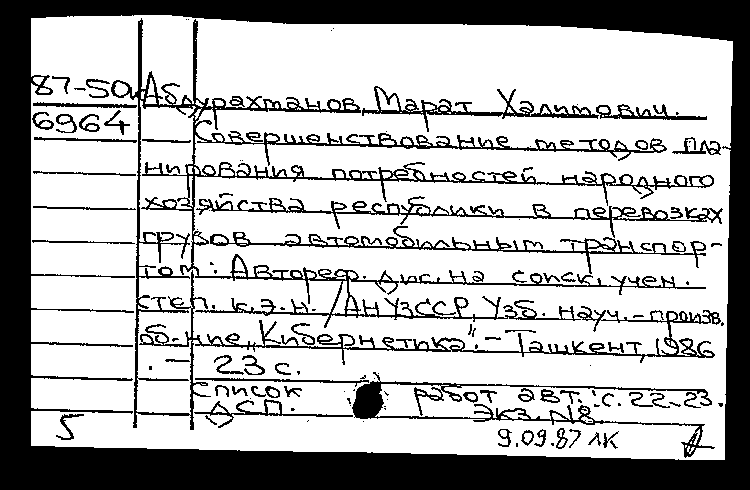 87-50к Абдурахманов, Марат Халитович.
6964 Совершенствование методов пла-
нирования потребностей народного
хозяйства республики в перевозках
грузов автомобильным транспор-
том: Автореф. дис. на соиск. учен.
степ. к.э.н. / АН УзССР, Узб. науч.-произв.
об-ние „Кибернетика". - Ташкент, 1986
. - 23 с.
Список работ авт.: с. 22-23.
ДСП. Экз. N8
5 9.09.87 ЛК